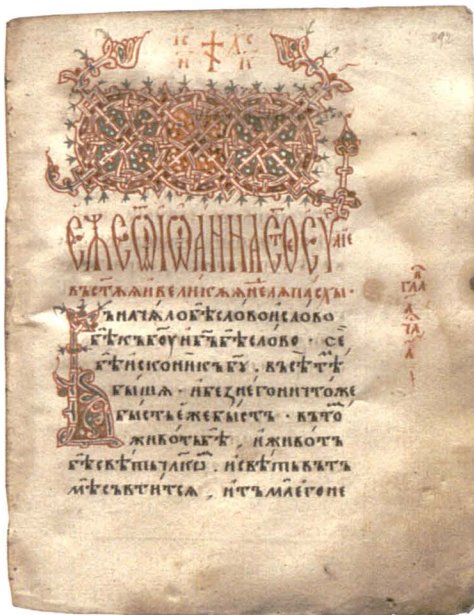 ІС ХС
НИ К
ЕЖЕ Ѿ ІѠАННА СТ҃ОЕ ЕУАГГЛІЕ
въ ст҃ѫѧ и великѫѧ нелѧ пасхы·
Въ начѧло бѣ слово и слово
бѣ къ боу и бъ бѣ слово · се
бѣ искони къ бу · въсѣ тѣ
бышѧ · и без него ничтоже
бысть еже бысть · въ то
животъ бѣ , и животъ
бѣ свѣтъ чл҃кѡ . и свѣтъ въ тъ
мѣ съвтитсѧ , и тъма его не